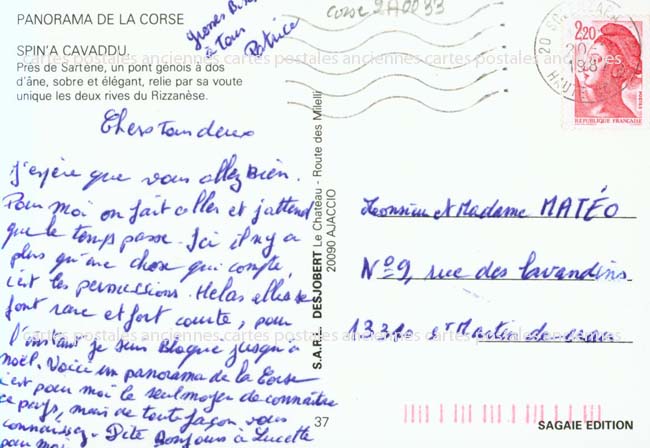 PANORAMA DE LA CORSE
SPIN'A CAVADDU.
Près de Sartene, un pont génois à dos
d'âne, sobre et élégant, relie par sa voute
unique les deux rives du Rizzanèse.
à tous
Patrice
corse 2A0033
2,20
REPUBLIQUE FRANCAISE
J'espère que vous allez Bien.
Pour moi on fait aller et j'attend
que le temps passe. Ici il n'y a
plus qu'une chose qui compte,
c'est les permissions. Helas elles se
font rare et fort courte, pour
l'instant je suis Bloqué jusqu'a
noël. Voici un panorama de la Corse
c'est pour moi le seul moyen de connaitre
ce pays, mais de toute façon vous
connaissez. Dite Bonjours à Lucette
pour moi
S.A.R.L. DESJOBERT Le Chateau - Route des Milelli
20090 AJACCIO
Monsieur et Madame MATÉO
N°9, rue des lavandins
13310 St Martin de crau
37
SAGAIE EDITION
cartes postales anciennes cartes postales anciennes cartes postales anciennes
cartes postales anciennes cartes postales anciennes cartes postales anciennes